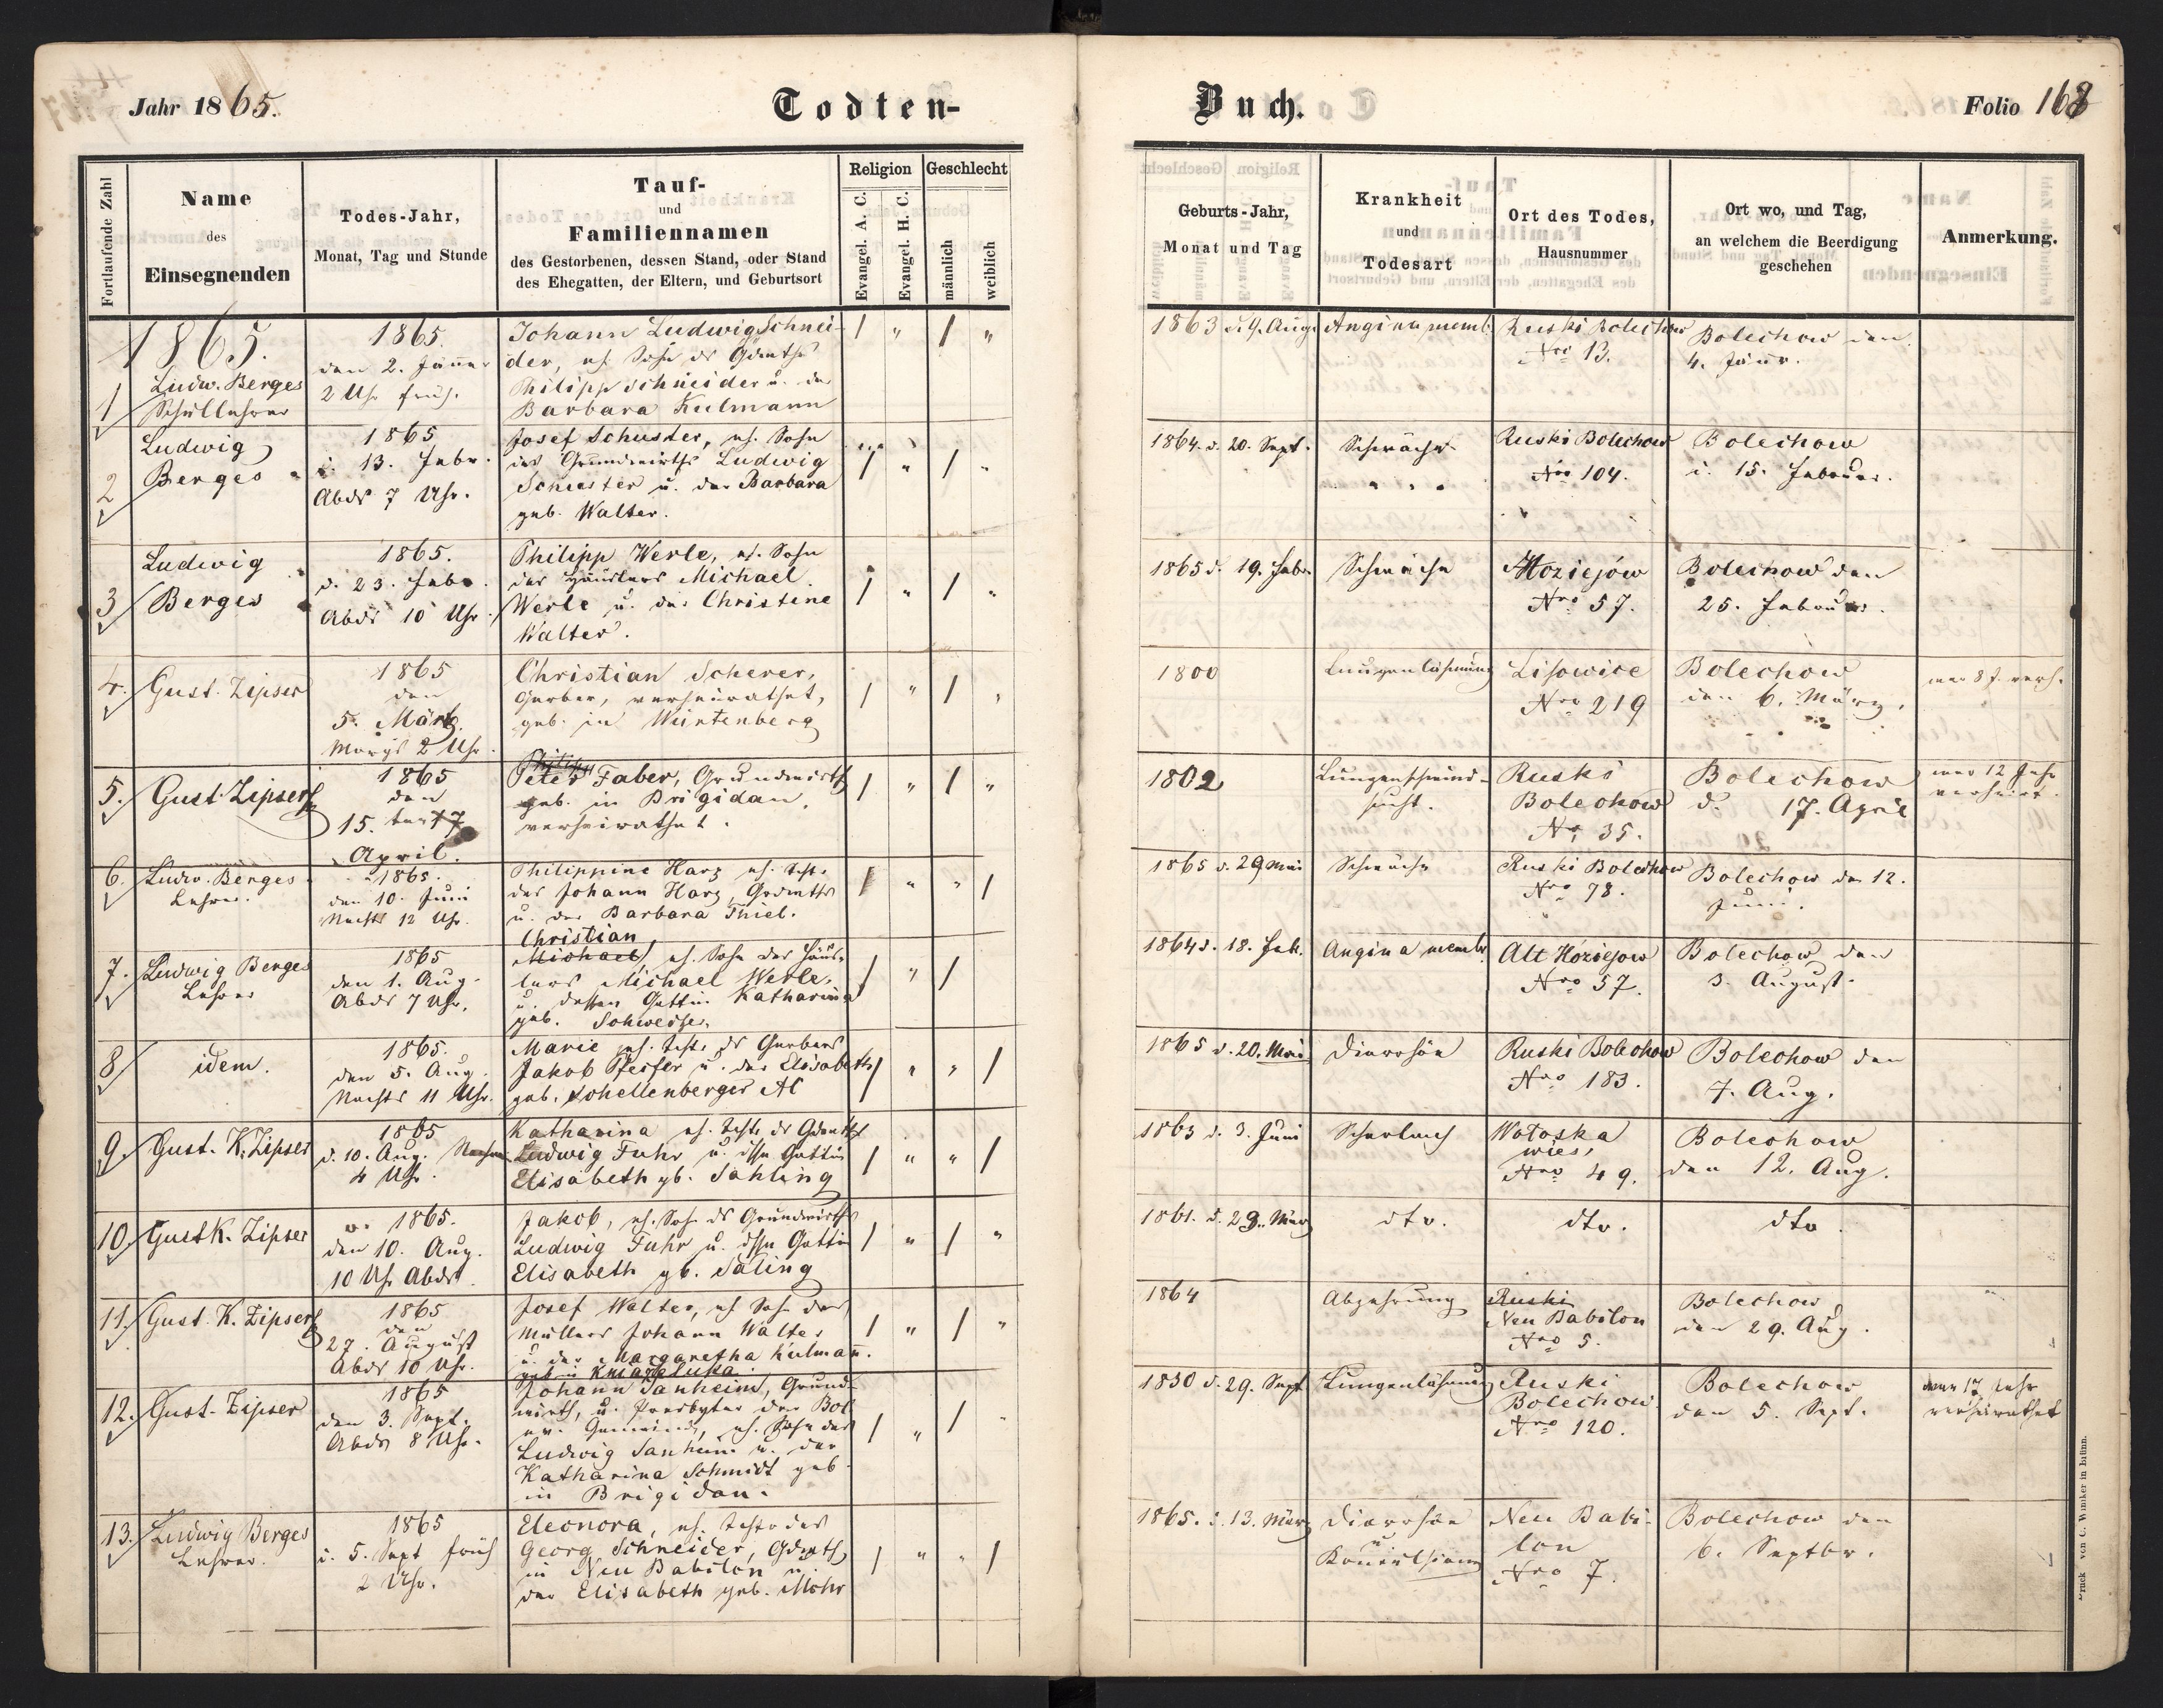 Jahr 1865.
Todten-
Buch.
Folio 168
Fortlaufende Zahl
Name
des
Einsegnenden
Todes-Jahr,
Monat, Tag und Stunde
Tauf-
und
Familiennamen
des Gestorbenen, dessen Stand, oder Stand
des Ehegatten, der Eltern, und Geburtsort
Religion
Evangel. A. C.
Evangel. H. C.
Geschlecht
männlich
weiblich
Geburts-Jahr,
Monat und Tag
Krankheit
und
Todesart
Ort des Todes,
Hausnummer
Ort wo, und Tag,
an welchem die Beerdigung
geschehen
Anmerkung.
1865.
1
Ludw. Berges
Schullehrer
1865.
den 2. Jänner
2 Uhr früh.
Johann Ludwig Schnei-
der, eh. Sohn ds Gdwrths
Philipp Schneider u. der
Barbara Kulmann
/ " / "
1863 d. 9. Aug.
Angina memb.
Ruski Bolechow
Nro 13.
Bolechow den
4. Jänr.
2
Ludwig
Berges
1865
d. 13. Febr.
Abds 7 Uhr.
Josef Schuster, eh. Sohn
des Grundwirths Ludwig
Schuster u. der Barbara
geb. Walter.
/ " / "
1864. d. 20. Sept.
Schwäche
Ruski Bolechow
Nro 104.
Bolechow
d. 15. Februar.
3
Ludwig
Berges
1865.
d. 23. Febr.
Abds 10 Uhr.
Philipp Werle, eh. Sohn
des Häuslers Michael
Werle u. der Christine
Walter.
/ " / "
1865 d. 19. Febr
Schwäche
Hoziejów
Nro 57.
Bolechow den
25. Februar.
4.
Gust. Zipser
1865
den
5. März.
Morgs 2 Uhr.
Christian Scherer,
Gerber, verheirathet,
geb. in Würtenberg
/ " / "
1800
Lungenlähmung
Lisowice
Nro 219
Bolechow
den 6. März.
war 8 J. verh.
5.
Gust. Zipser
1865
den
15. ten 17
April.
Philipp
Peter Faber, Grundwirth
geb. in Brigidau,
verheirathet.
/ " / "
1802
Lungenschwind-
sucht.
Ruski
Bolechow
No 35.
Bolechow
d. 17. April
war 12 Jahr
verheirt.
6.
Ludw. Berges
Lehrer.
1865.
den 10. Juni
Nachts 12 Uhr.
Philippine Harz eh. Tcht.
des Johann Harz, Grdwrths
u. der Barbara Thiel.
/ " " /
1865 d. 29 Mai
Schwäche
Ruski Bolechow
Nro 78.
Bolechow den 12.
Juni.
7.
Ludwig Berges
Lehrer
1865
den 1. Aug.
Abds 7 Uhr.
Christian
Michael, eh. Sohn des Häus-
lers Michael Werle,
u. dessen Gattin Katharina
geb. Schweitzer.
/ " /
1864 d. 18. Feb.
Angina membr.
Alt Hoziejow
Nro 57.
Bolechow den
3. August.
8
idem.
1865.
den 5. Aug.
Nachts 11 Uhr.
Marie eh. Tcht. ds Gerbers
Jakob Pfeifer u. der Elisabeth
geb. Schellenberger AC
/ " " /
1865 d. 20. Mai
Diarrhöe
Ruski Bolechow
Nro 183.
Bolechow den
7. Aug.
9.
Gust. K. Zipser
1865
d. 10. Aug. Nachm.
4 Uhr.
Katharina eh. Tcht. ds Gdwrths
Ludwig Fuhr u. dssn Gattin
Elisabeth gb. Sahling
/ " " /
1863 d. 3. Juni
Scharlach
Wołoska
wies,
Nro 49.
Bolechow
den 12. Aug.
10.
Gust K. Zipser
1865.
den 10. Aug.
10 Uhr Abds.
Jakob, eh. Sohn ds Grundwirths
Ludwig Fuhr u. dssn Gattin
Elisabeth gb. Saling
/ " / "
1861. d. 29. März
dto.
dto.
dto.
11.
Gust. K. Zipser
1865
den
27. August
Abds 10 Uhr.
Josef Walter, eh Sohn des
Müllers Johann Walter
u. der Margaretha Kulmann.
geb in Kniaźeluka.
/ " / "
1864
Abzehrung
Ruski
Neu Babilon
Nro 5.
Bolechow
den 29. Aug.
12.
Gust. Zipser
1865
den 3. Sept.
Abds 8 Uhr.
Johann Sanheim, Grund-
wirth, u. Presbyter der Bol
ev. Gemeinde, eh. Sohn des
Ludwig Sanheim u. der
Katharina Schmidt geb.
in Brigidau.
/ " / "
1830 d. 29. Sept
Lungenlähmung
Ruski
Bolechow.
Nro 120.
Bolechow
den 5. Sept.
war 17 Jahr
verheirathet
13.
Ludwig Berges
Lehrer.
1865
d. 5. Sept früh
2 Uhr.
Eleonora, eh. Tcht. des
Georg Schneider, Gdwrth
in Neu Babilon u.
der Elisabeth geb. Mohr
/ " " /
1865. d. 13. März
Diarrhöe
u
Konvulsionen
Neu Babi-
lon
Nro 7.
Bolechow den
6. Septbr.
Druck von C. Winiker in Brünn.